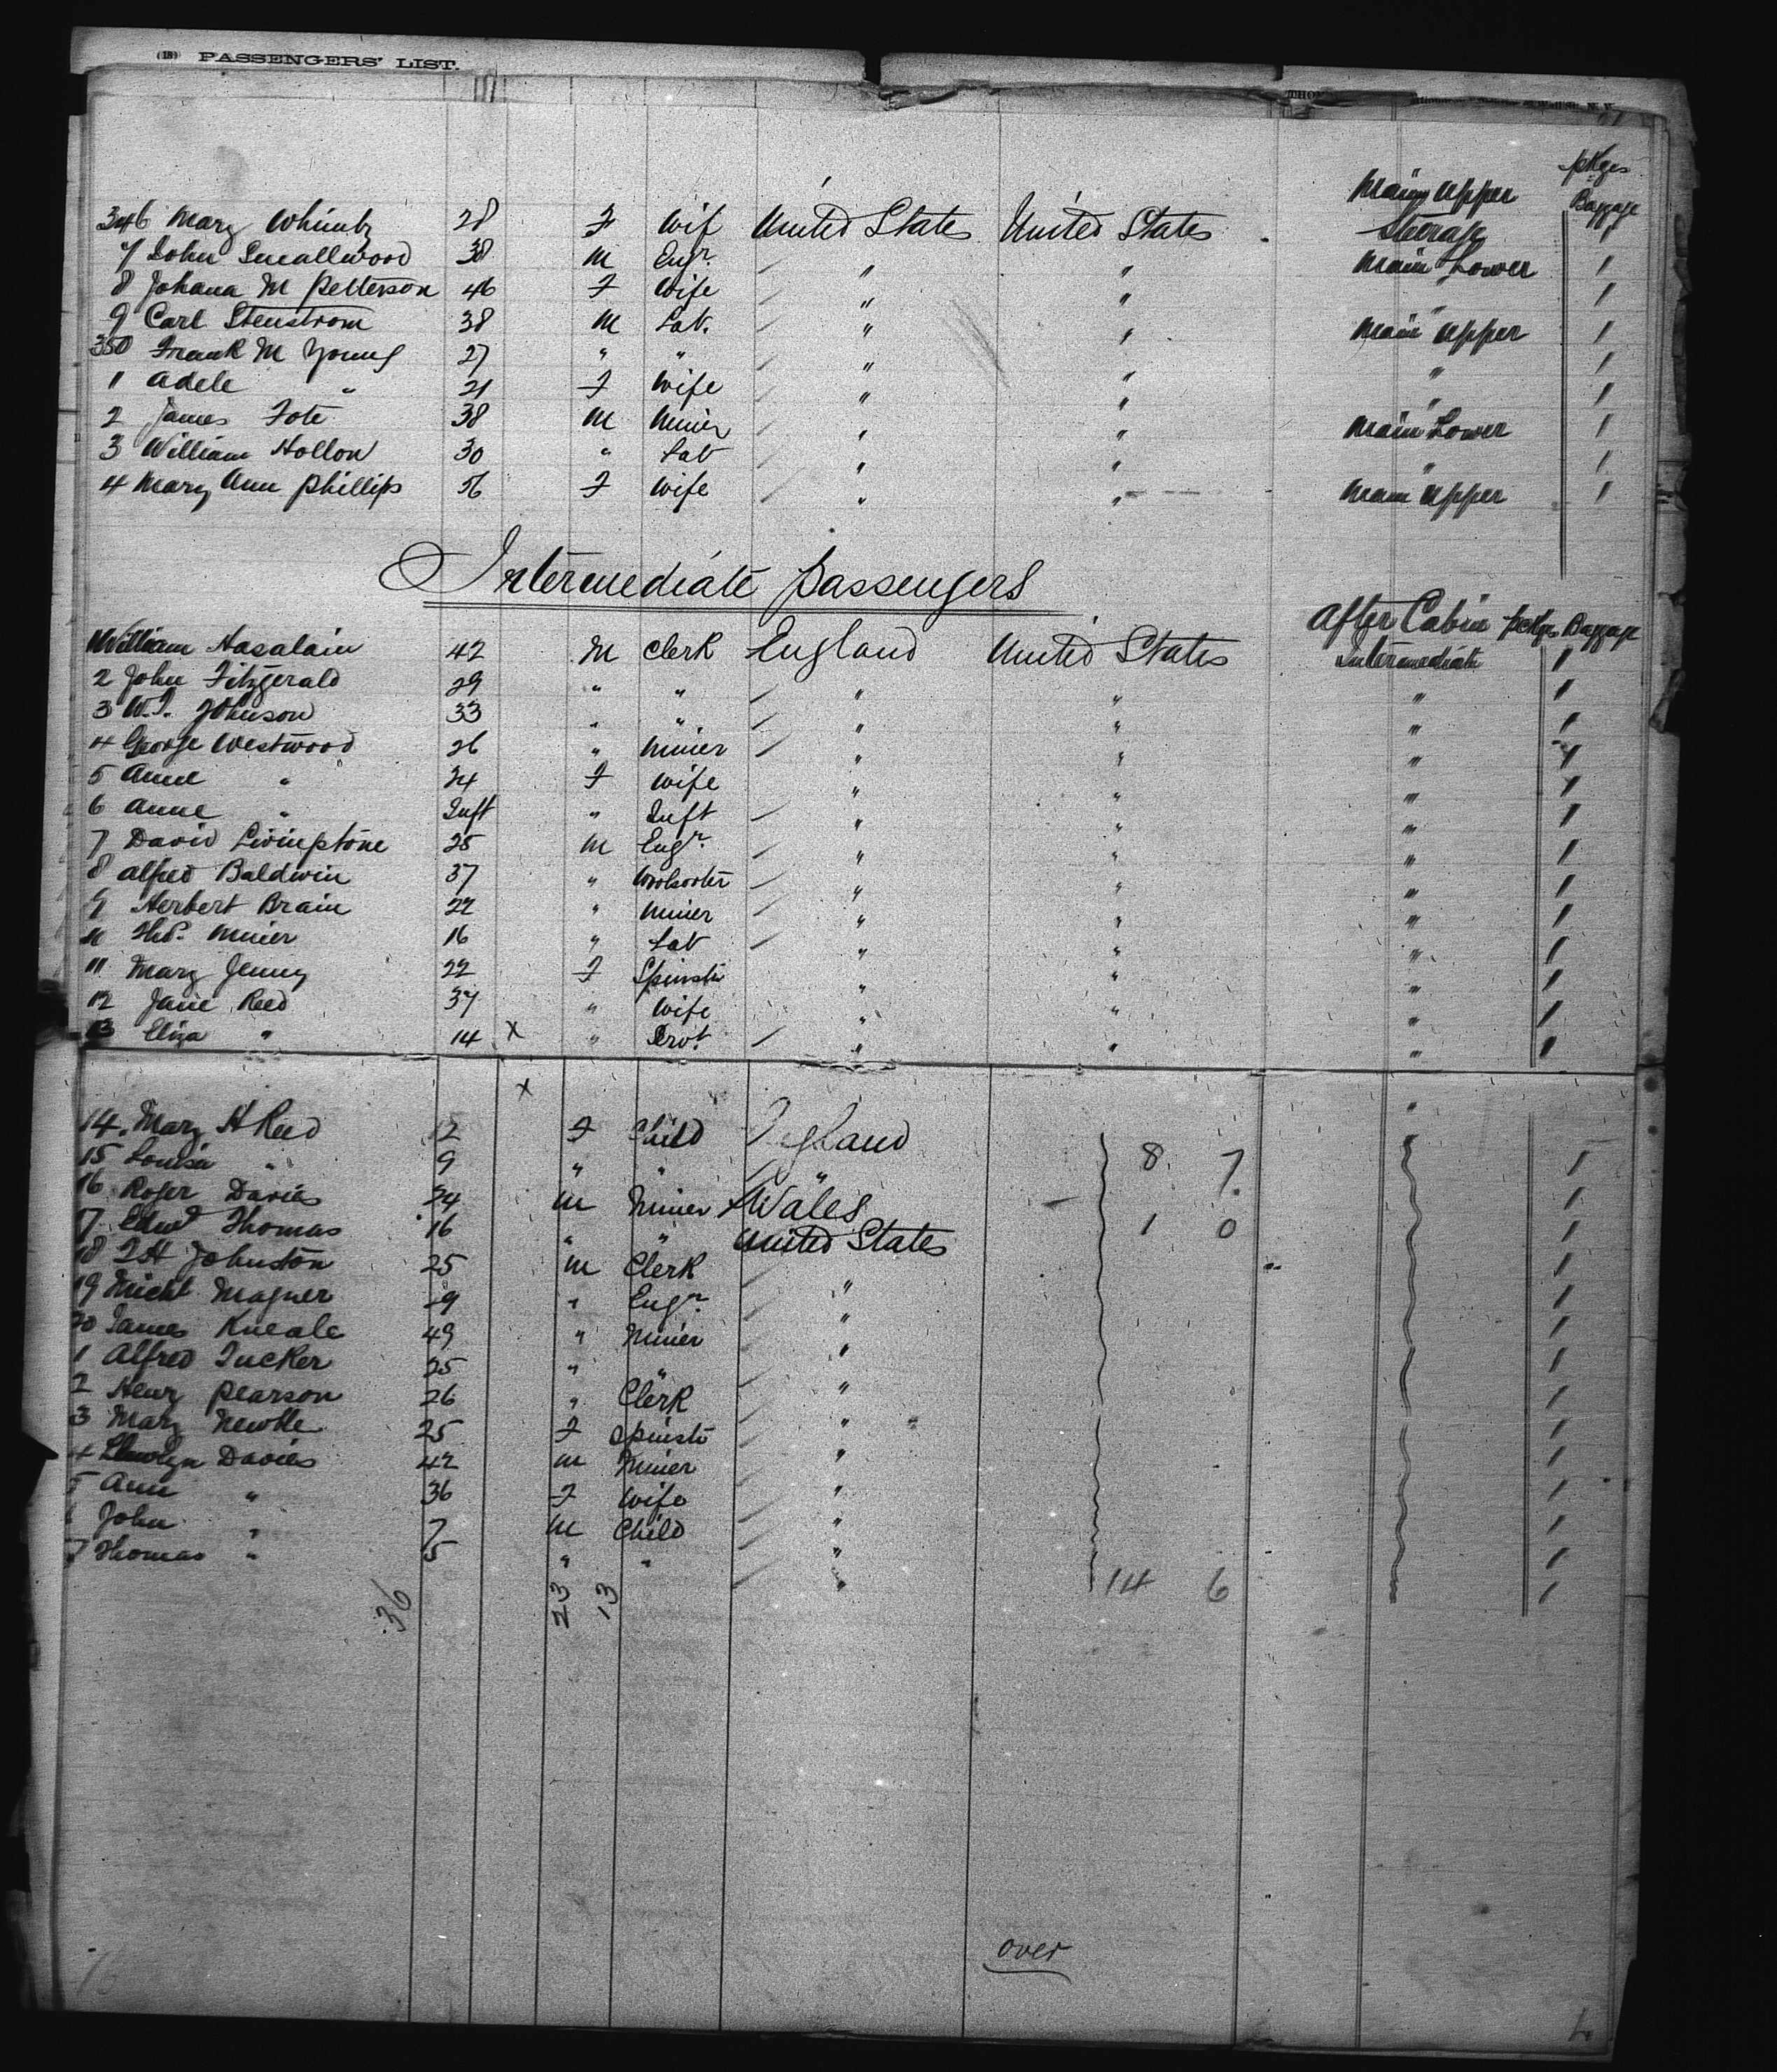 (18) PASSENGERS' LIST.
pkges
Main Upper Baggage
346 Mary Whimby 28 F Wif United States United States Steerage 1
7 John Smallwood 38 M Engr. " " Main Lower 1
8 Johana M Petterson 46 F Wife " " " 1
9 Carl Stenstrom 38 M Lab. " " Main Upper 1
350 Frank M Young 27 " " " " " 1
1 Adele " 21 F Wife " " " 1
2 James Fote 38 M Miner " " Main Lower 1
3 William Hollow 30 " Lab " " " 1
4 Mary Ann Phillips 56 F Wife " " Main Upper 1
Intermediate Passengers
After Cabin pckges Baggage
William Hasalain 42 M Clerk England United States Intermediate 1
2 John Fitzgerald 29 " " " " " 1
3 W.J. Johnson 33 " " " " " 1
4 George Westwood 26 " Miner " " " 1
5 Anne " 24 F Wife " " " 1
6 Anne " Inft " Inft " " " 1
7 David Livingstone 25 M Engr. " " " 1
8 Alfred Baldwin 37 " Woolsorter " " " 1
9 Herbert Brain 22 " Miner " " " 1
10 Thos. Miner 16 " Lab " " " 1
11 Mary Jenny 22 F Spinstr " " " 1
12 Jane Reed 37 " Wife " " " 1
13 Eliza " 14 x " Srvt. " " " 1
x
14. Mary H Reed 12 F Child England 8. 7.
15 Louisa " 9 " " " 1
16 Roger Davies 24 M Miner Wales 1
17 Edwd Thomas 16 " " United States 1 0 1
18 J H Johnston 25 M Clerk 1
19 Michl Magner 29 " Engr. " 1
20 James Kneale 49 " Miner " 1
1 Alfred Tucker 25 " " " 1
2 Henry Pearson 26 " Clerk " 1
3 Mary 25 F Spinstr " 1
4 Llewlyn Davies 42 M Miner " 1
5 Ann " 36 F Wife " 1
6 John " 7 M Child " 1
7 Thomas " 5 " " " 1
36 23 13 14 6 1
over